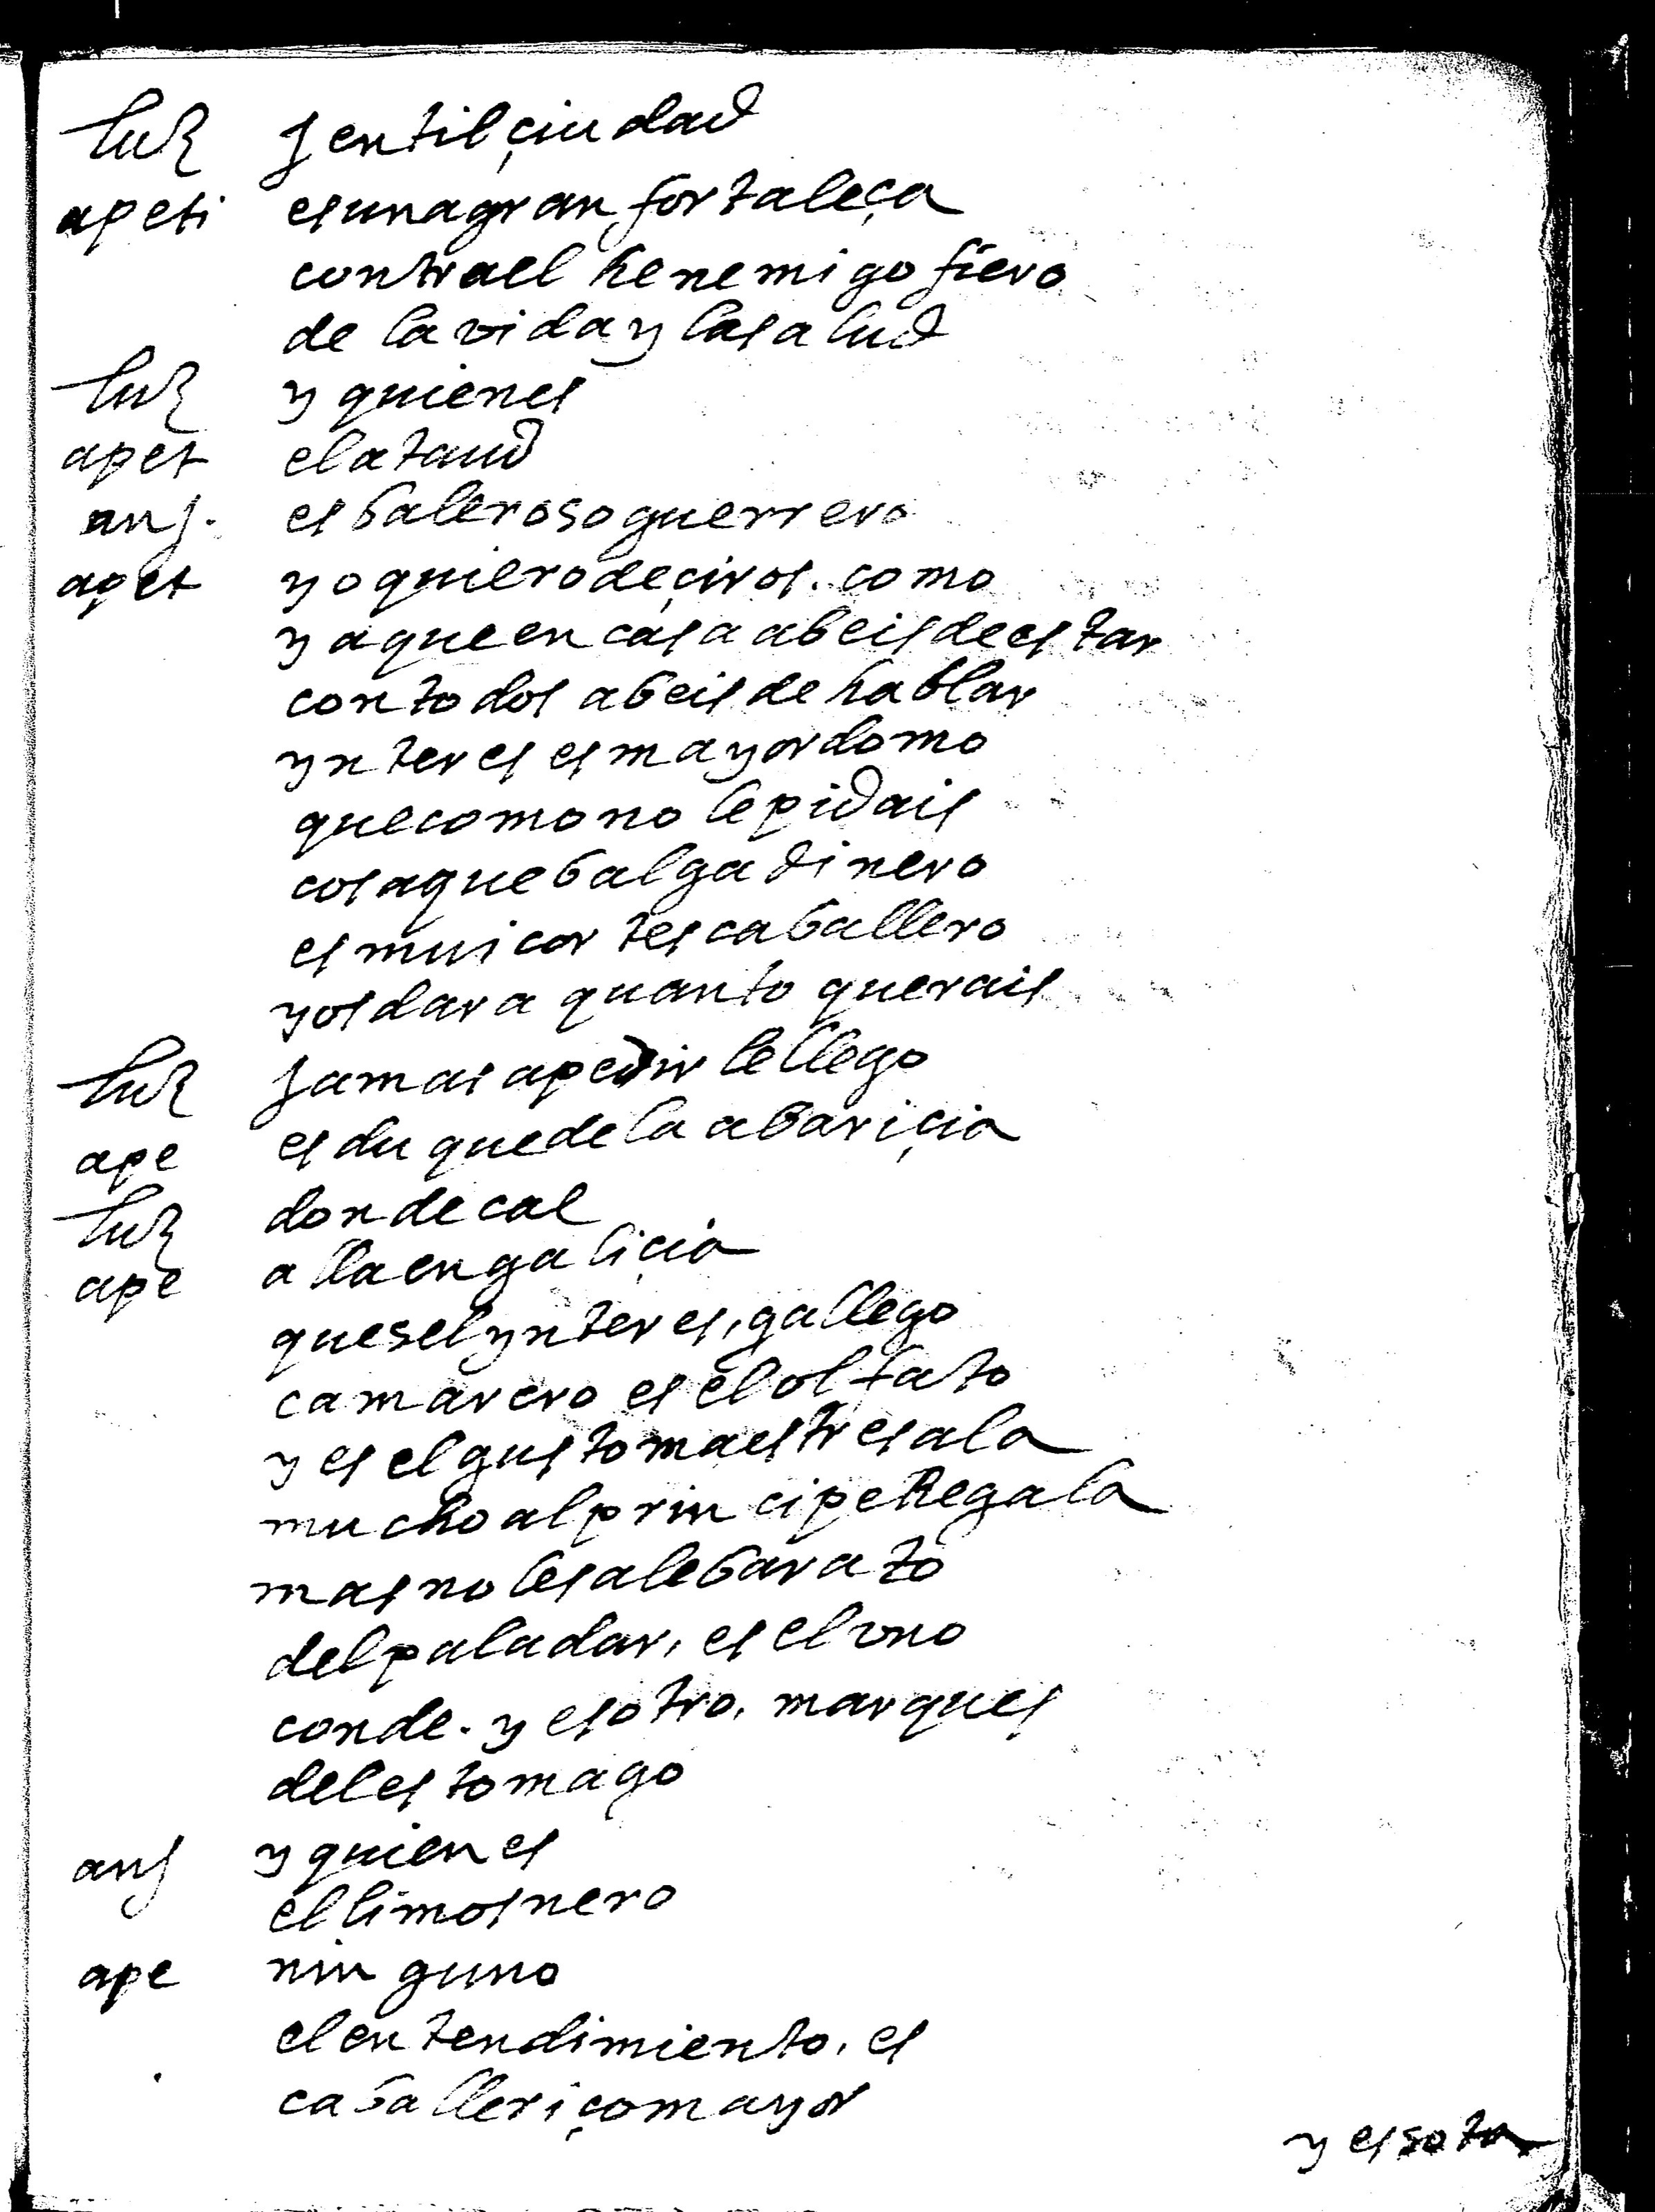 luz jentil çiudad
apeti es una gran fortaleça
contra el henemigo fiero
de la vida y la salud
luz y quien es
apet el ataud
anj. es baleroso guerrero
apet yo quiero deçiros. como
ya que en casa abeis de estar
con todos abeis de hablar
ynteres es mayordomo
que como no le pidais
cosa que balga dinero
es mui cortes caballero
y os dara quanto querais
luz jamas a pedir le llego
ape es duque de la abariçia
luz donde cae
ape alla en galiçia
ques el ynteres, gallego
camarero es el olfato
y es el gusto maestresala
mucho al principe Regala
mas no le sale barato
del paladar, es el vno
conde. y esotro, marques
del estomago
anj y quien es
el limosnero
ape ninguno
el entendimiento, es
caballeriço mayor
y es sota